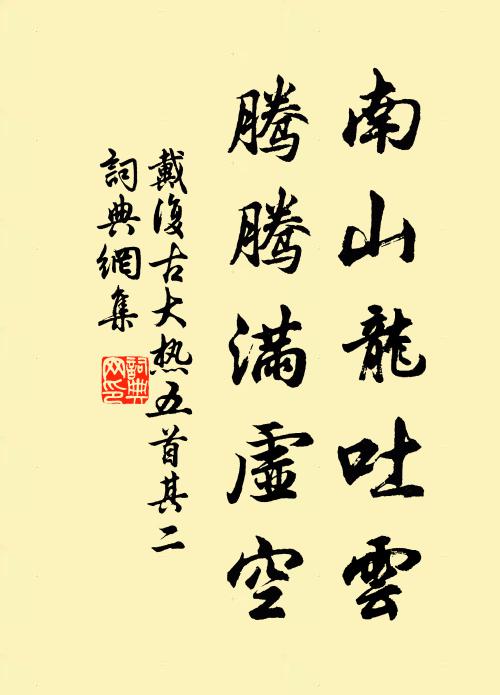 南山龍吐雲
騰騰滿虛空
戴復古大热五首其二
詞典網集
詞典网印